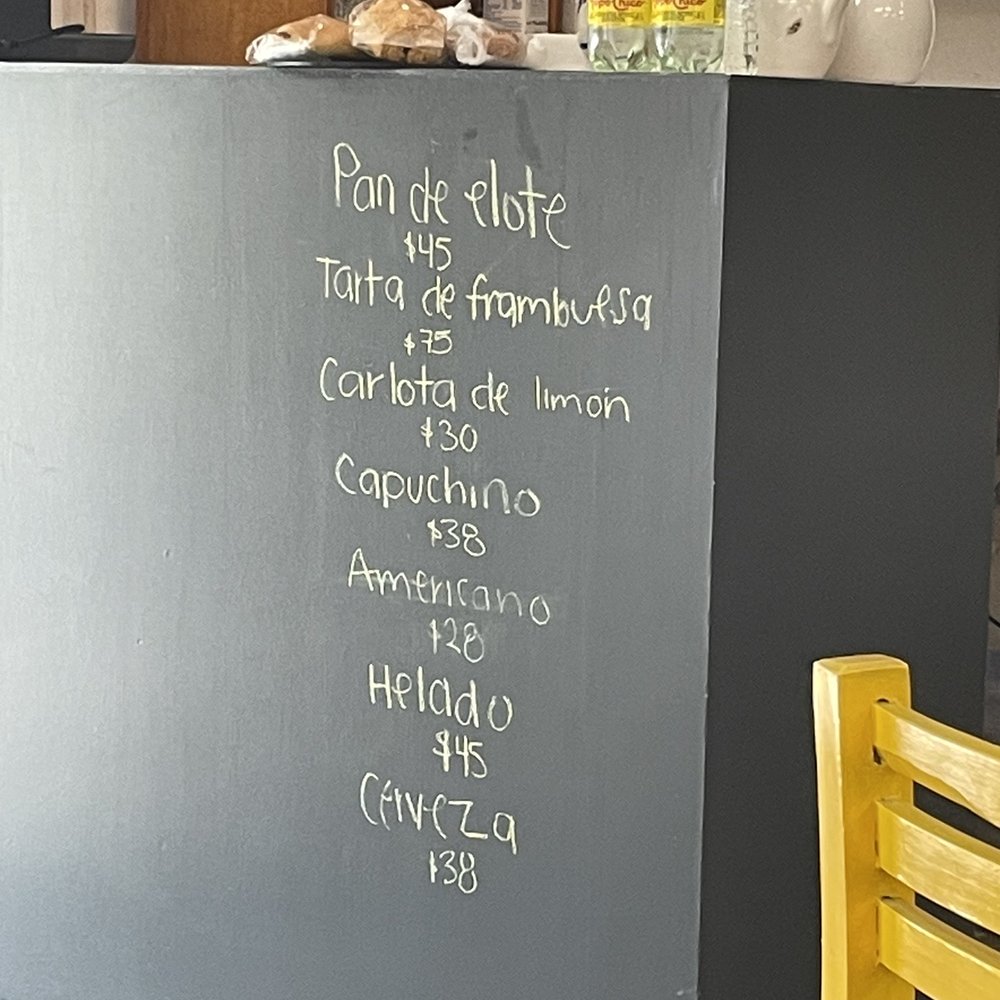 Topo Chico
Topo Chico
Pan de elote
$45
Tarta de frambuesa
$75
Carlota de limón
$30
Capuchino
$38
Americano
$28
Helado
$45
Cerveza
$38